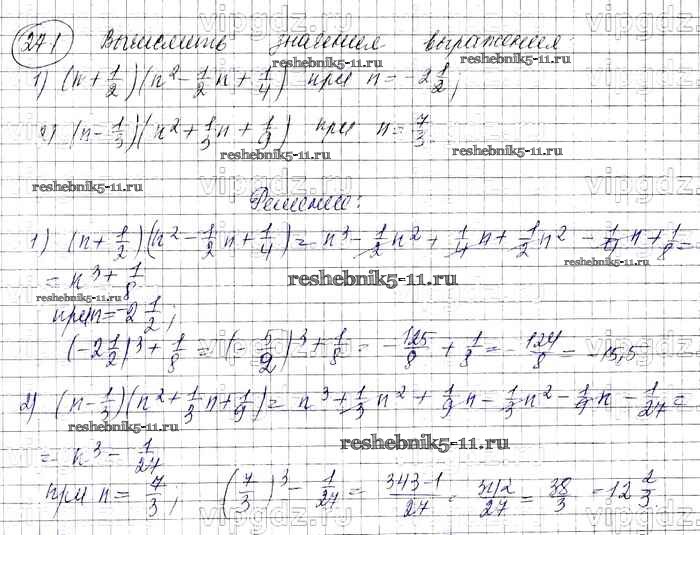 271 Вычислить значения выражения:
1) (n + 1/2)(n² - 1/2 n + 1/4) при n = -2 1/2;
2) (n - 1/3)(n² + 1/3 n + 1/9) при n = 7/3.
Решение:
1) (n + 1/2)(n² - 1/2 n + 1/4) = n³ - 1/2 n² + 1/4 n + 1/2 n² - 1/4 n + 1/8 =
= n³ + 1/8
при n = -2 1/2;
(-2 1/2)³ + 1/8 = (-5/2)³ + 1/8 = -125/8 + 1/8 = -124/8 = -15,5
2) (n - 1/3)(n² + 1/3 n + 1/9) = n³ + 1/3 n² + 1/9 n - 1/3 n² - 1/9 n - 1/27 =
= n³ - 1/27
при n = 7/3; (7/3)³ - 1/27 = 343-1/27 = 342/27 = 38/3 = 12 2/3
reshebnik5-11.ru
vipgdz.ru